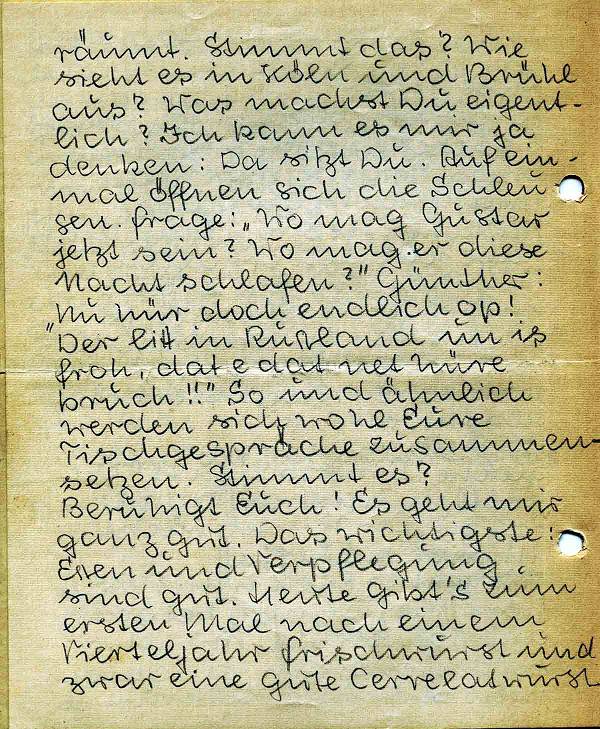 räumt. Stimmt das? Wie
sieht es in Köln und Brühl
aus? Was machst Du eigent-
lich? Ich kann es mir ja
denken: Da sitzt Du. Auf ein-
mal öffnen sich die Schleu-
sen. Frage: „Wo mag Gustav
jetzt sein? Wo mag er diese
Nacht schlafen?" Günther:
„Nu hür doch endlich op!
Der litt in Rußland un is
froh, dat e dat net hüre
bruch!!" So und ähnlich
werden sich wohl Eure
Tischgespräche zusammen-
setzen. Stimmt es?
Beruhigt Euch! Es geht mir
ganz gut. Das wichtigste:
Essen und Verpflegung
sind gut. Heute gibt's zum
ersten Mal nach einem
Vierteljahr Frischwurst und
zwar eine gute Cervelatwurst